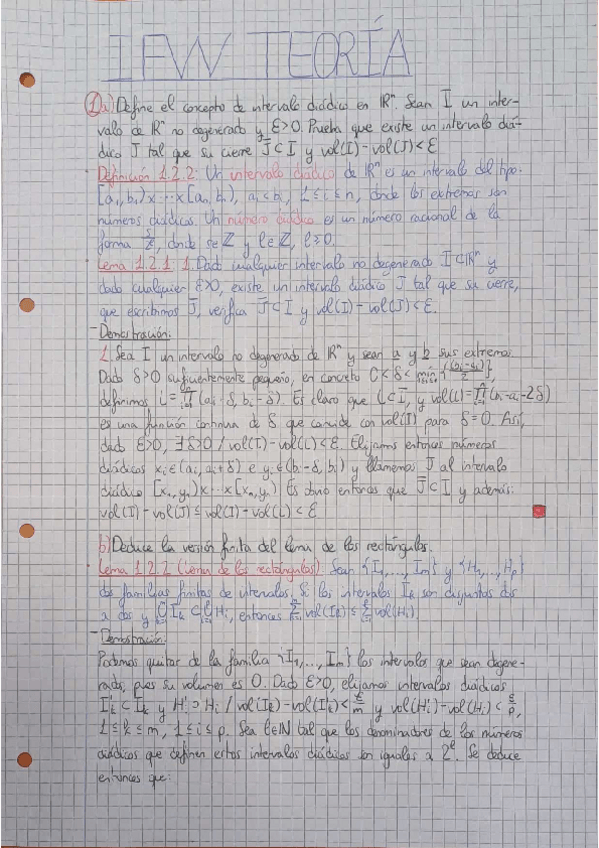 IFVV TEORÍA
1 a) Define el concepto de intervalo diádico en ℝⁿ. Sean I un inter-
valo de ℝⁿ no degenerado y ε>0. Prueba que existe un intervalo diá-
dico J tal que su cierre J̄⊂I y vol(I)-vol(J)<ε.
Definición 1.2.2: Un intervalo diádico de ℝⁿ es un intervalo del tipo:
[a₁,b₁)×···×[aₙ,bₙ), aᵢ<bᵢ, 1≤i≤n, donde los extremos son
números diádicos. Un número diádico es un número racional de la
forma s/2^ℓ, donde s∈ℤ y ℓ∈ℤ, ℓ≥0.
Lema 1.2.1. 1. Dado cualquier intervalo no degenerado I⊂ℝⁿ y
dado cualquier ε>0, existe un intervalo diádico J tal que su cierre,
que escribimos J̄, verifica J̄⊂I y vol(I)-vol(J)<ε.
-Demostración:
1. Sea I un intervalo no degenerado de ℝⁿ y sean a y b sus extremos.
Dado δ>0 suficientemente pequeño, en concreto 0<δ<min_{1≤i≤n}{(bᵢ-aᵢ)/2},
definimos L=∏_{i=1}^n(aᵢ-δ, bᵢ-δ). Es claro que L⊂I, y vol(L)=∏_{i=1}^n(bᵢ-aᵢ-2δ)
es una función continua de δ que coincide con vol(I) para δ=0. Así,
dado ε>0, ∃δ>0 / vol(I)-vol(L)<ε. Elijamos entonces números
diádicos xᵢ∈(aᵢ,aᵢ+δ) e yᵢ∈(bᵢ-δ,bᵢ) y llamemos J al intervalo
diádico [x₁,y₁)×···×[xₙ,yₙ). Es obvio entonces que J̄⊂I y además:
vol(I)-vol(J)≤vol(I)-vol(L)<ε
b) Deduce la versión finita del lema de los rectángulos.
Lema 1.2.2 (Lema de los rectángulos) Sean {I₁,...,Iₘ} y {H₁,...,Hₚ}
dos familias finitas de intervalos. Si los intervalos Iₖ son disjuntos dos
a dos y ⋃_{k=1}^m Iₖ⊂⋃_{i=1}^p Hᵢ, entonces ∑_{k=1}^m vol(Iₖ)≤∑_{i=1}^p vol(Hᵢ).
-Demostración:
Podemos quitar de la familia {I₁,...,Iₘ} los intervalos que sean degene-
rados, pues su volumen es 0. Dado ε>0, elijamos intervalos diádicos
I'ₖ⊂Iₖ y H'ᵢ⊃Hᵢ / vol(Iₖ)-vol(I'ₖ)<ε/m y vol(H'ᵢ)-vol(Hᵢ)<ε/p,
1≤k≤m, 1≤i≤p. Sea ℓ∈ℕ tal que los denominadores de los números
diádicos que definen estos intervalos diádicos son iguales a 2^ℓ. Se deduce
entonces que: